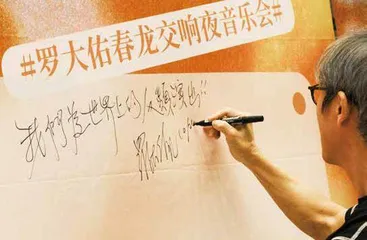 #罗大佑春龙交响夜音乐会#
我們為世界上的人類演出!!
羅大佑